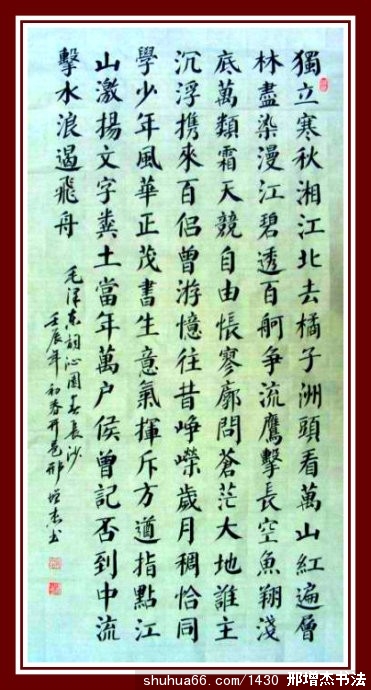 獨立寒秋湘江北去橘子洲頭看萬山紅遍層
林盡染漫江碧透百舸争流鷹擊長空魚翔淺
底萬類霜天競自由悵寥廓問蒼茫大地誰主
沉浮携來百侣曾游憶往昔峥嶸歲月稠恰同
學少年風華正茂書生意氣揮斥方遒指點江
山激揚文字糞土當年萬户侯曾記否到中流
擊水浪遏飛舟
毛泽东词沁園春長沙
壬辰年初春邢增杰书
shuhua66.com/1430 邢增杰书法